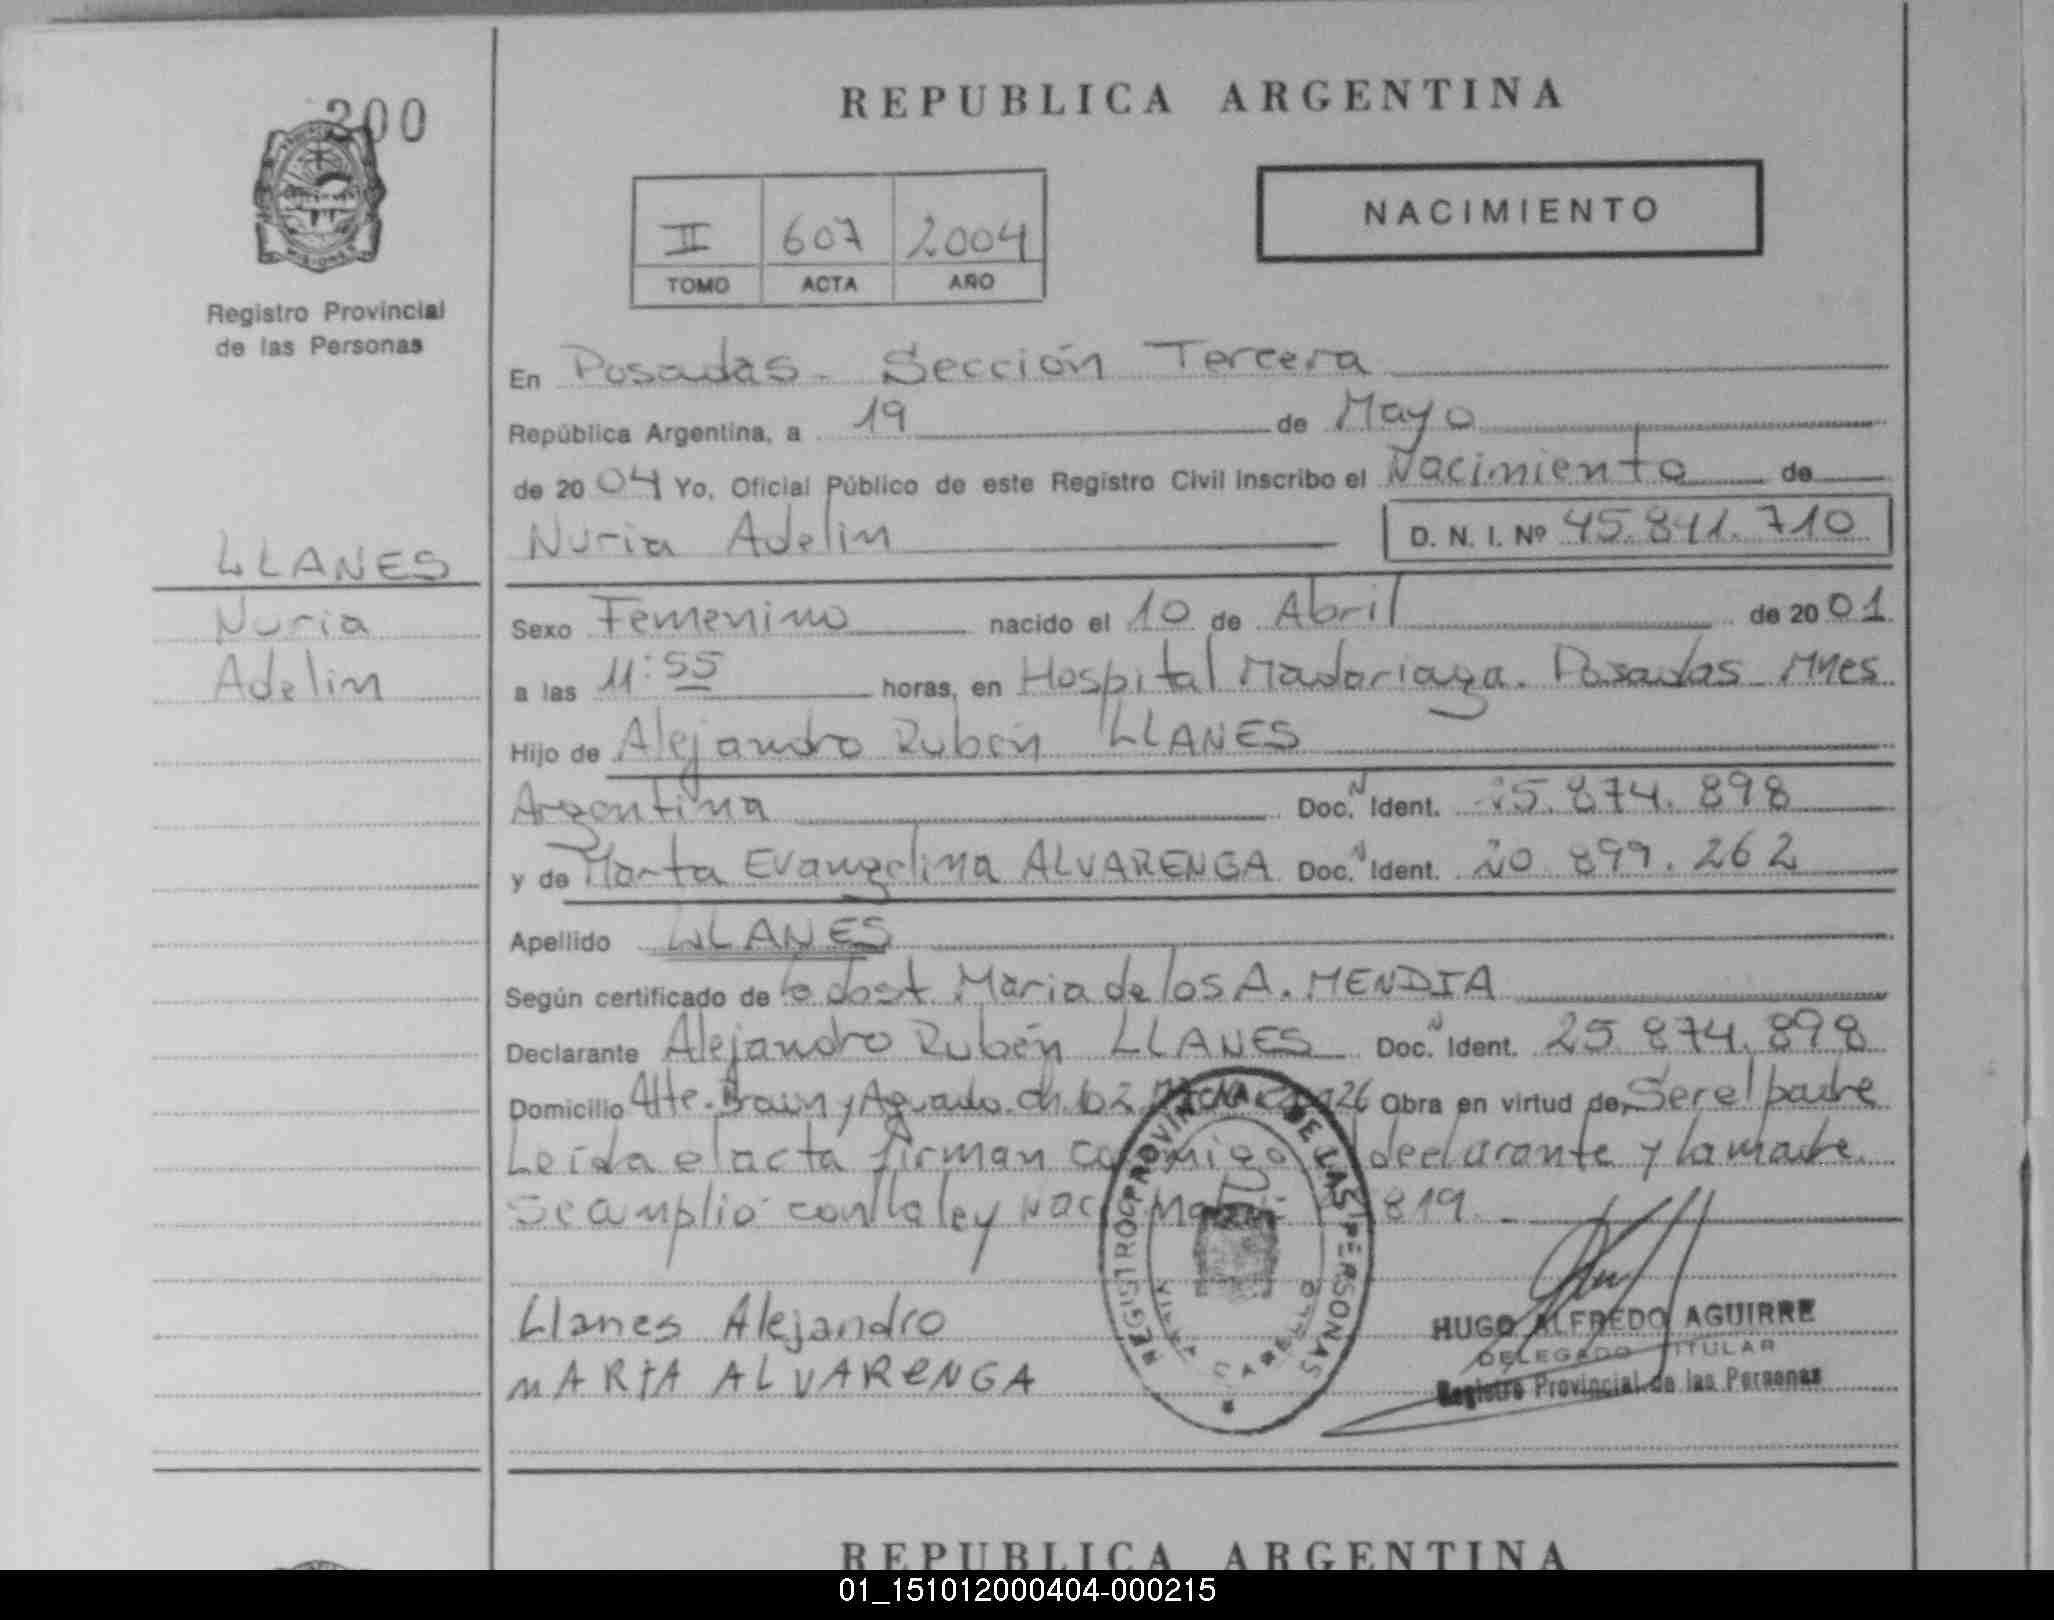 200
REPUBLICA ARGENTINA
II 607 2004
TOMO ACTA AÑO
NACIMIENTO
Registro Provincial
de las Personas
En Posadas. Sección Tercera
República Argentina, a 19 de Mayo
de 2004 Yo, Oficial Público de este Registro Civil Inscribo el Nacimiento de
Nuria Adelin D. N. I. Nº 45.841.710
LLANES
Nuria
Adelin
Sexo Femenino nacido el 10 de Abril de 2001
a las 11:55 horas, en Hospital Madariaga. Posadas Mnes
Hijo de Alejandro Rubén LLANES
Argentina Doc. N Ident. 25.874.898
y de Marta Evangelina ALVARENGA Doc. N Ident. 20.899.262
Apellido LLANES
Según certificado de Obst. Maria de los A. MENDIA
Declarante Alejandro Rubén LLANES Doc. N Ident. 25.874.898
Domicilio Alte. Brown y Aguado. ch. 62 26 Obra en virtud de, Ser el padre
Leída el acta firman conmigo el declarante y la madre.
Se cumplió con la ley Nacional 819.
Llanes Alejandro
MARTA ALVARENGA
REGISTRO PROVINCIAL DE LAS PERSONAS
VILLA CABELLO
HUGO ALFREDO AGUIRRE
DELEGADO TITULAR
Registro Provincial de las Personas
REPUBLICA ARGENTINA
01_151012000404-000215